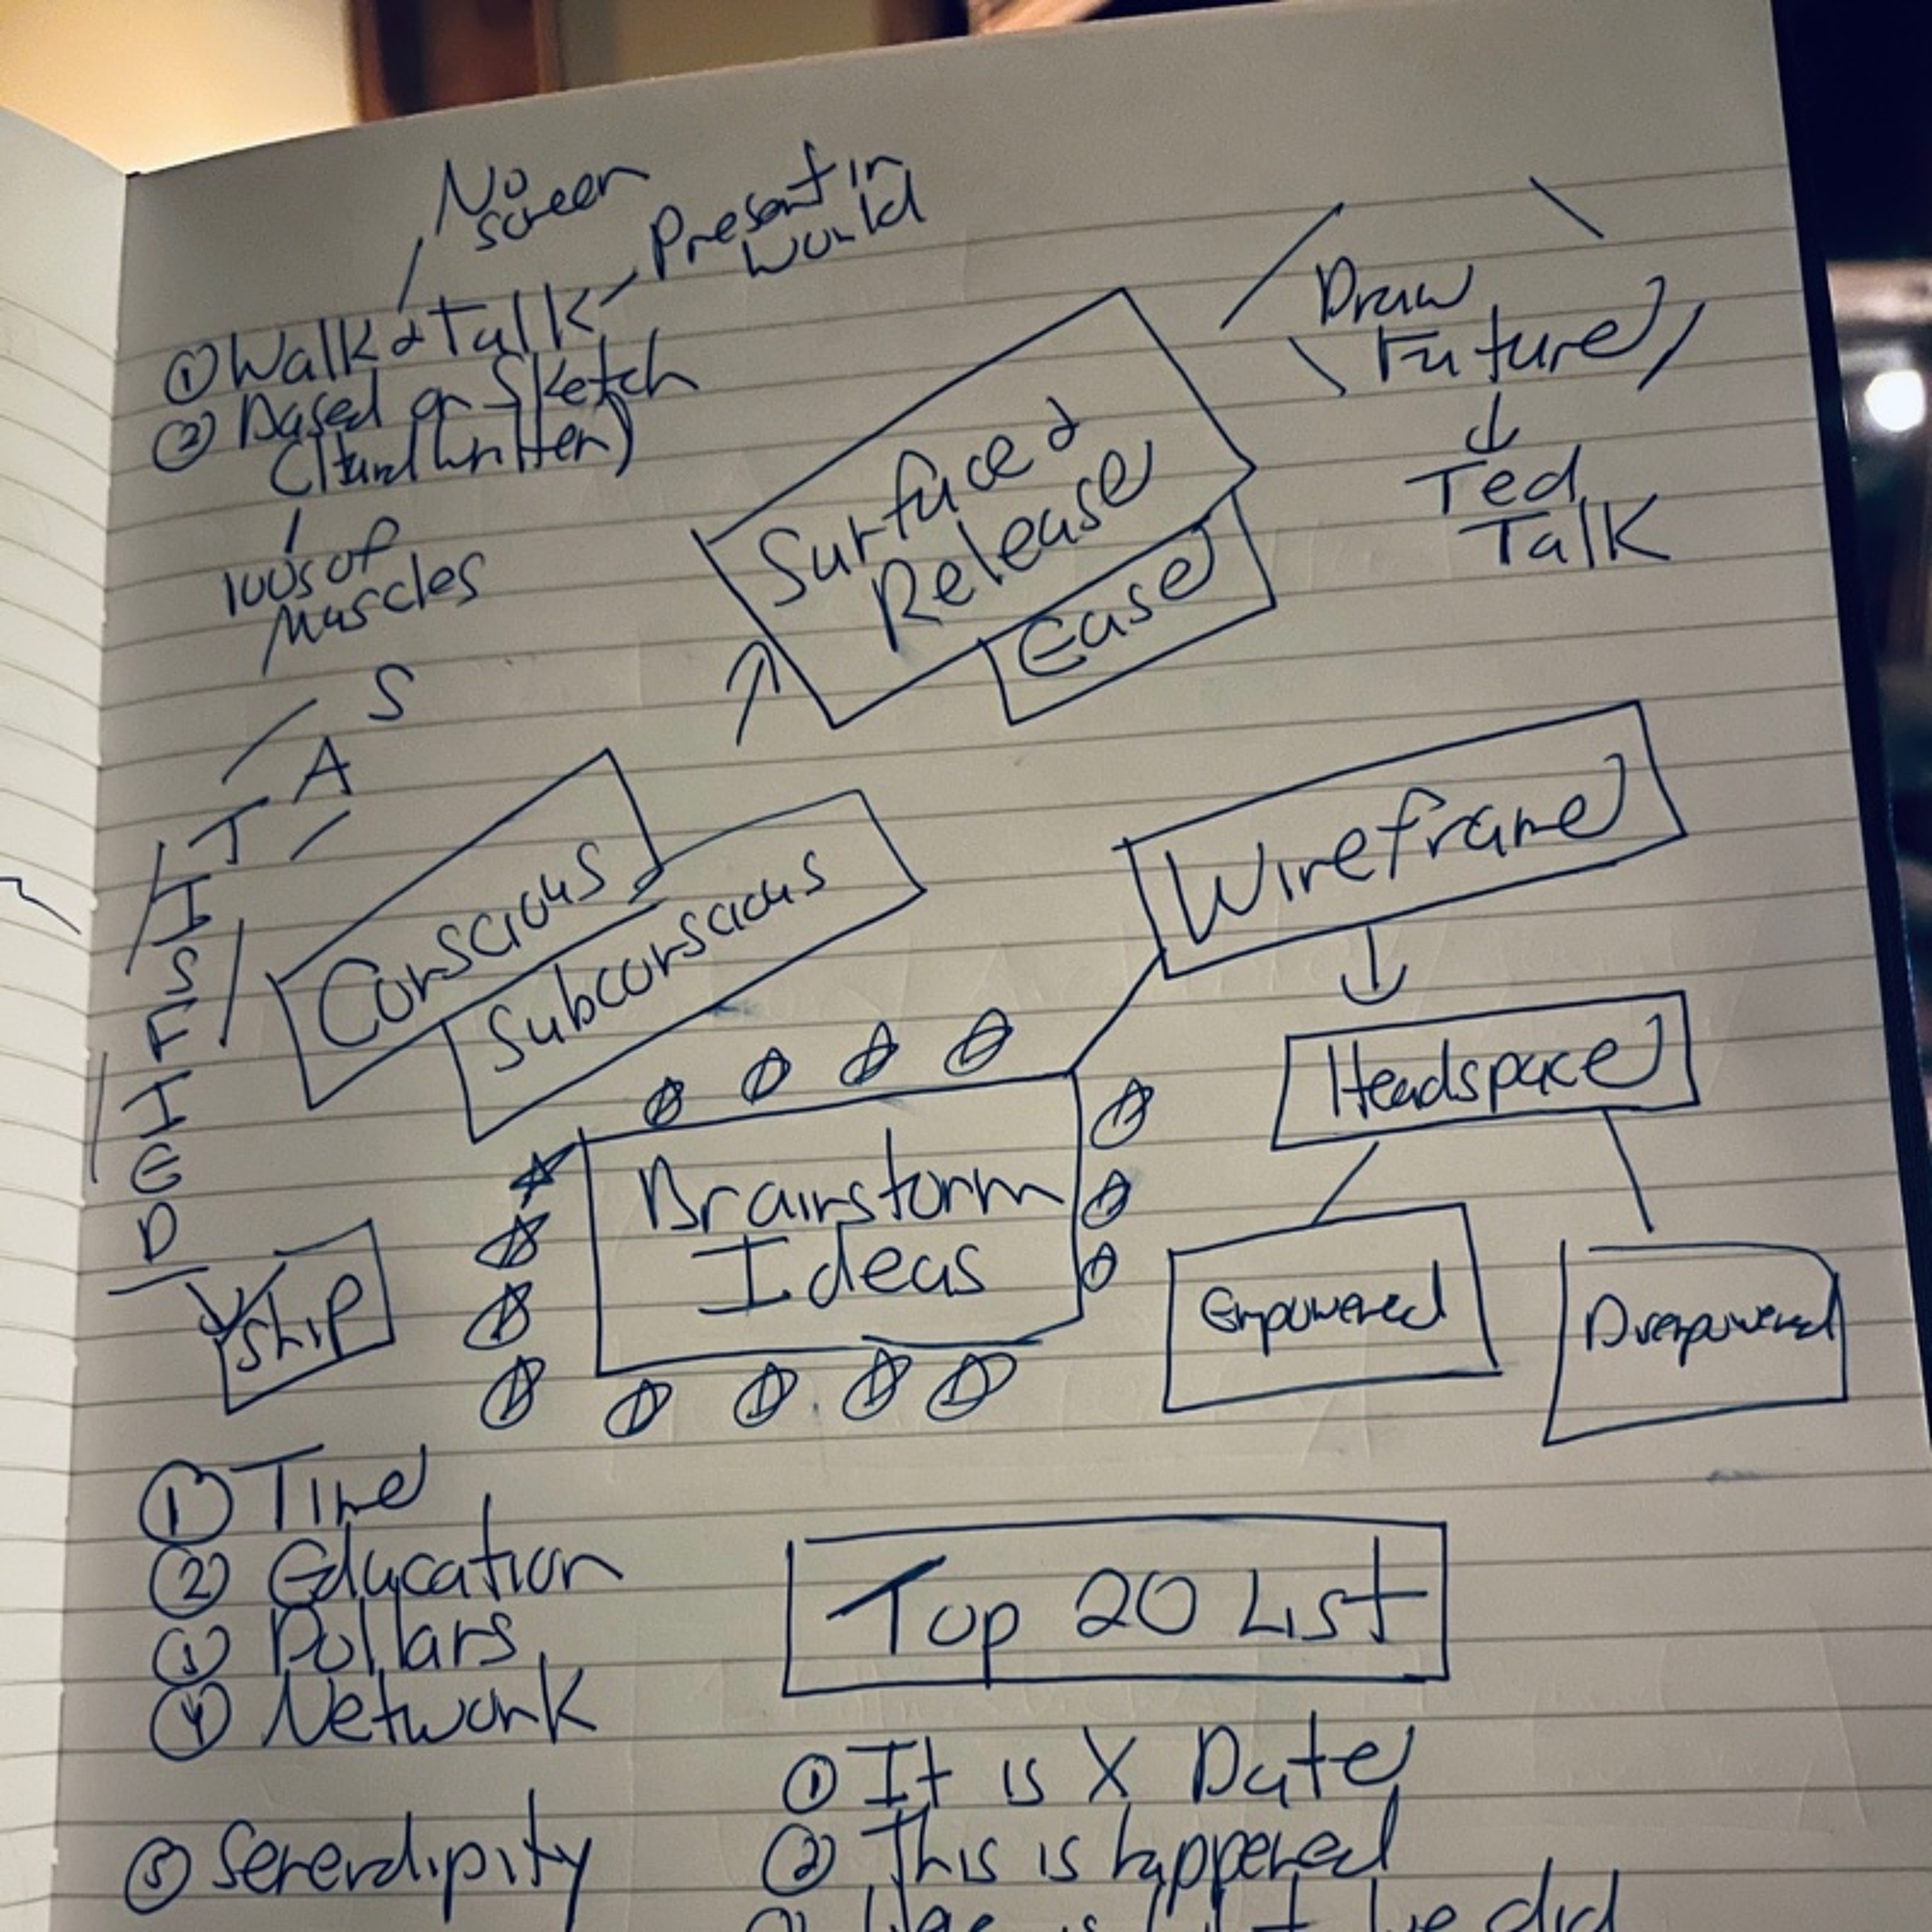 No
screen
Present in
World
① Walk & Talk
② Based on Sketch
(Handwritten)
100s of
Muscles
Draw
Future
Ted
Talk
Surface &
Release
Ease
S
A
T
I
S
F
I
E
D
Ship
Conscious
Subconscious
Wireframe
Headspace
Empowered
Overpowered
Brainstorm
Ideas
① Time
② Education
③ Dollars
④ Network
⑤ Serendipity
Top 20 List
① It is X Date
② This is happened
did